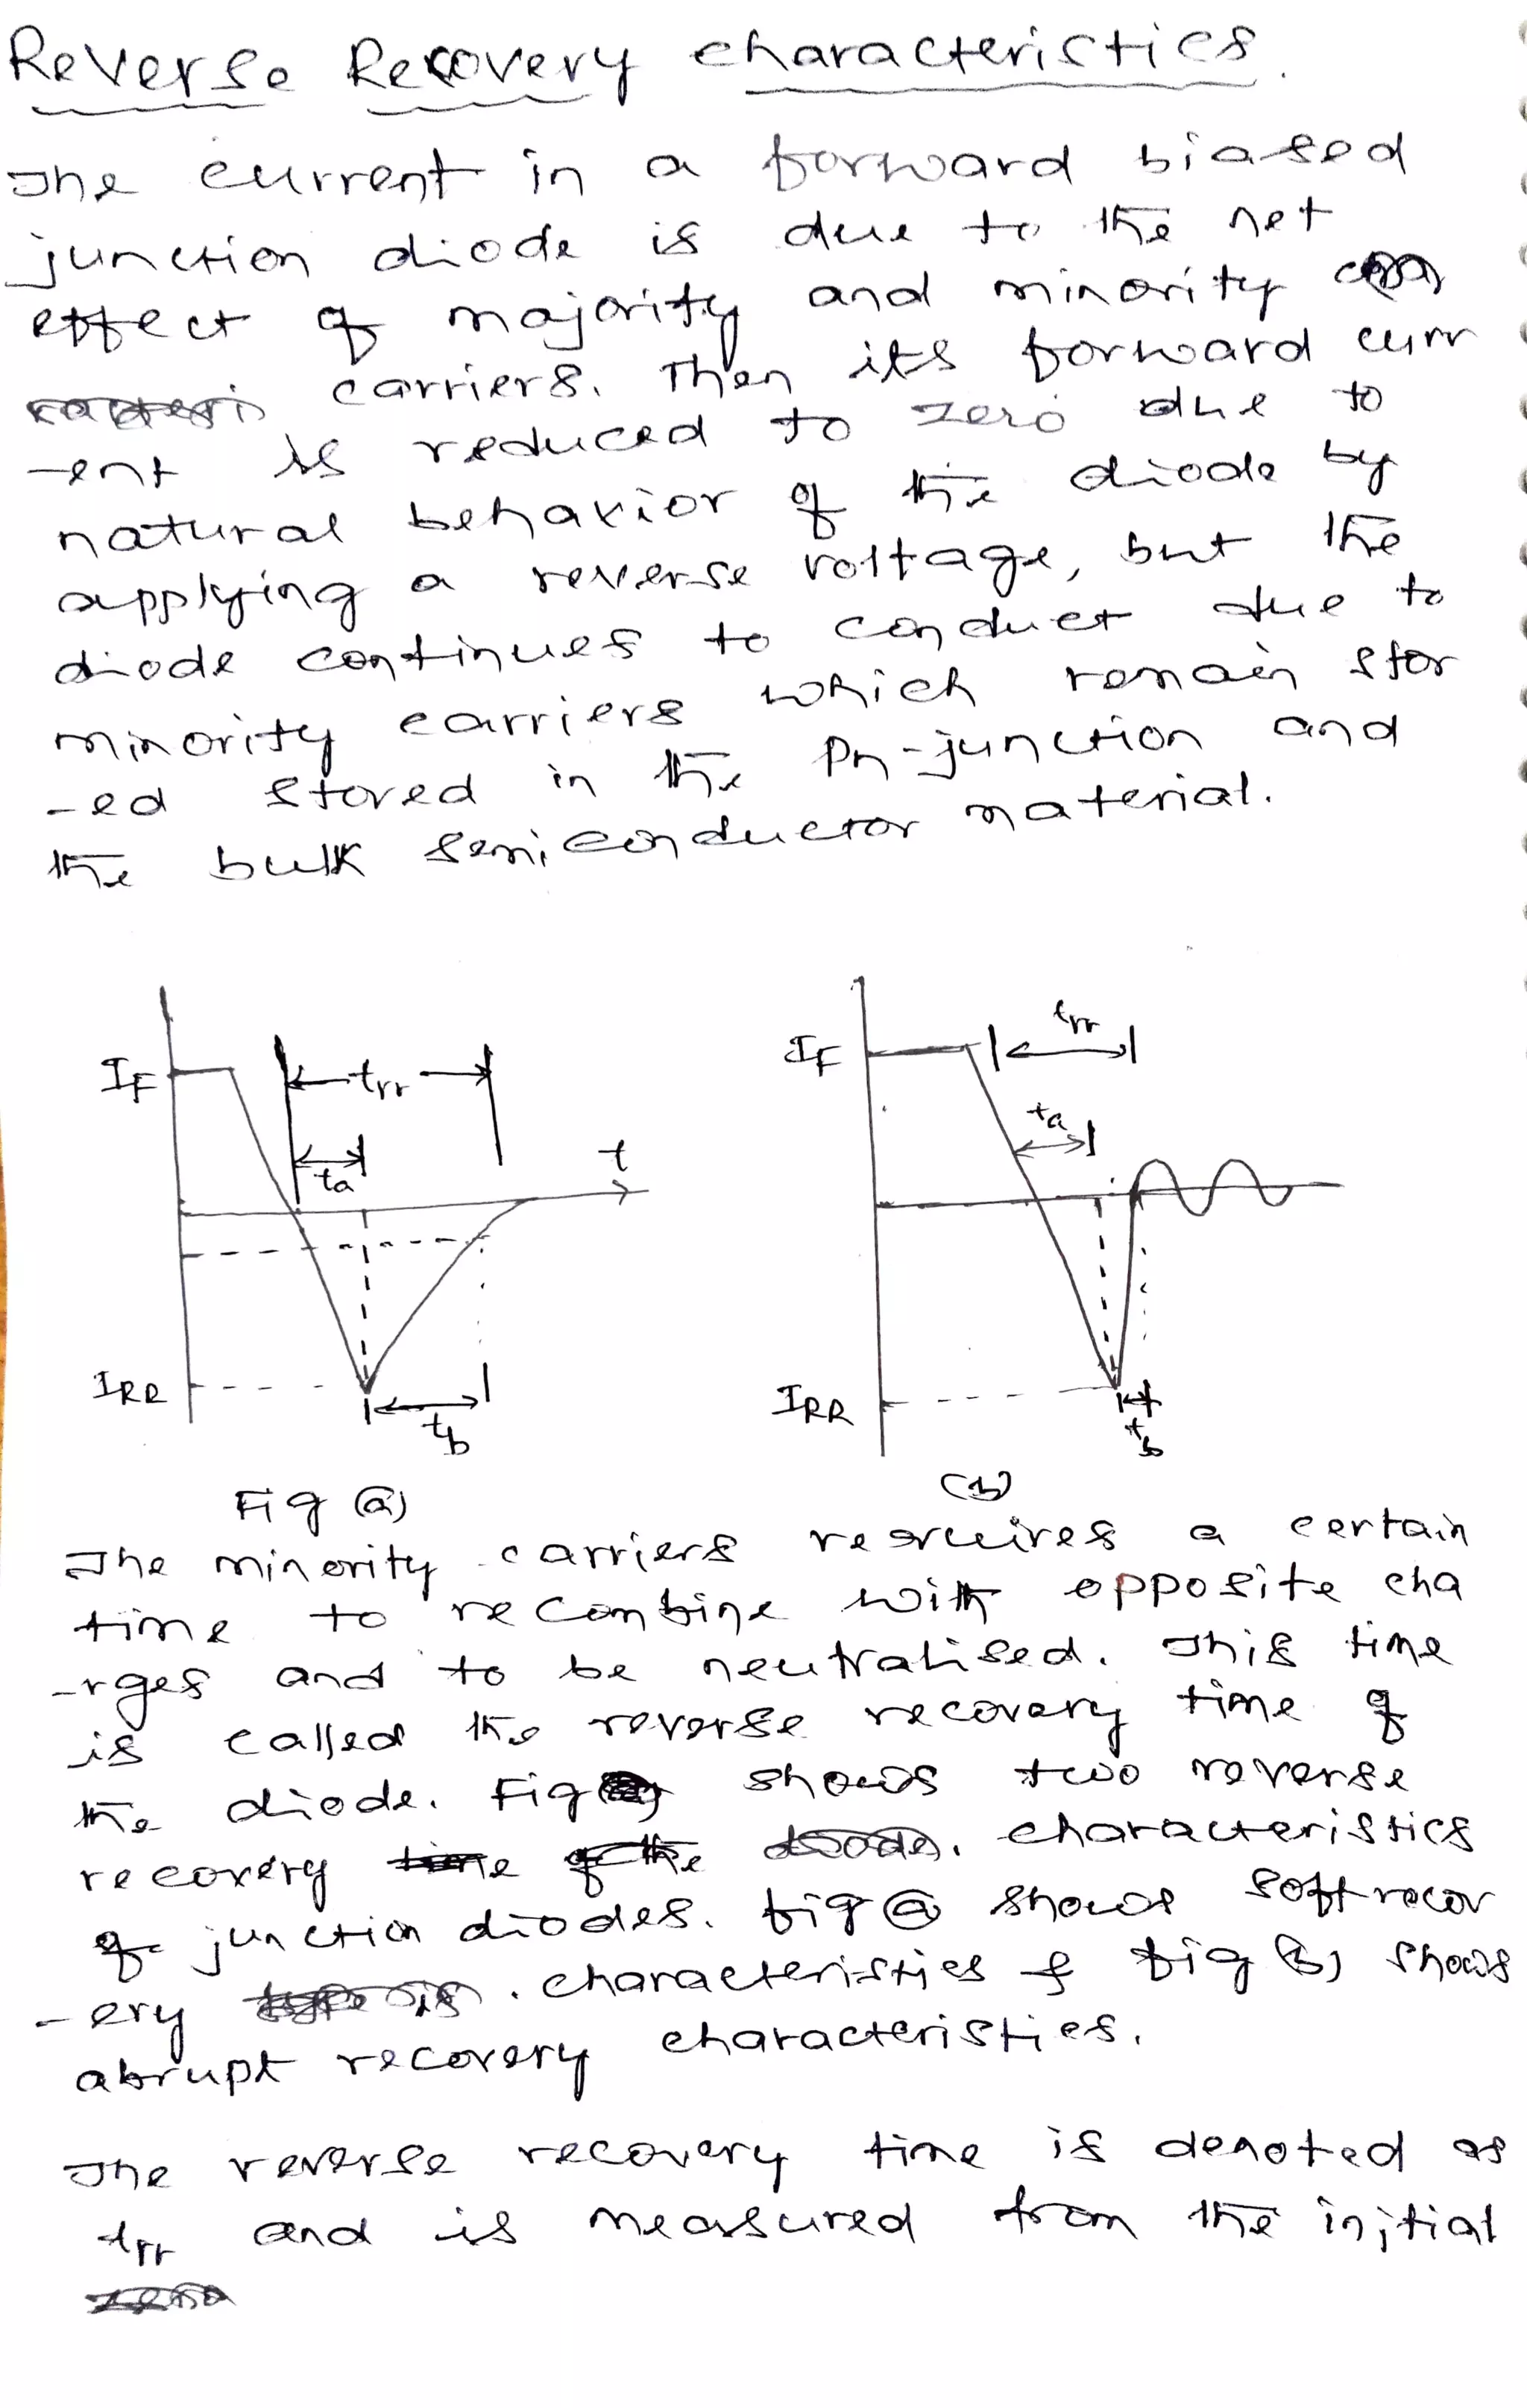 Reverse Recovery characteristics.
The current in a forward biased
junction diode is due to the net
effect of majority and minority
carriers. Then its forward curr
-ent is reduced to zero due to
natural behavior of the diode by
applying a reverse voltage, but the
diode continues to conduct due to
minority carriers which remain stor
-ed stored in the Pn-junction and
the bulk semiconductor material.
IF trr ta t IRR tb
IF trr ta IRR tb
Fig (a) (b)
The minority carriers requires a certain
time to recombine with opposite cha
-rges and to be neutralised. This time
is called the reverse recovery time of
the diode. Fig shows two reverse
recovery time of the diode. characteristics
of junction diodes. fig (a) shows soft recov
-ery characteristics & fig (b) shows
abrupt recovery characteristics.
The reverse recovery time is denoted as
trr and is measured from the initial
zero